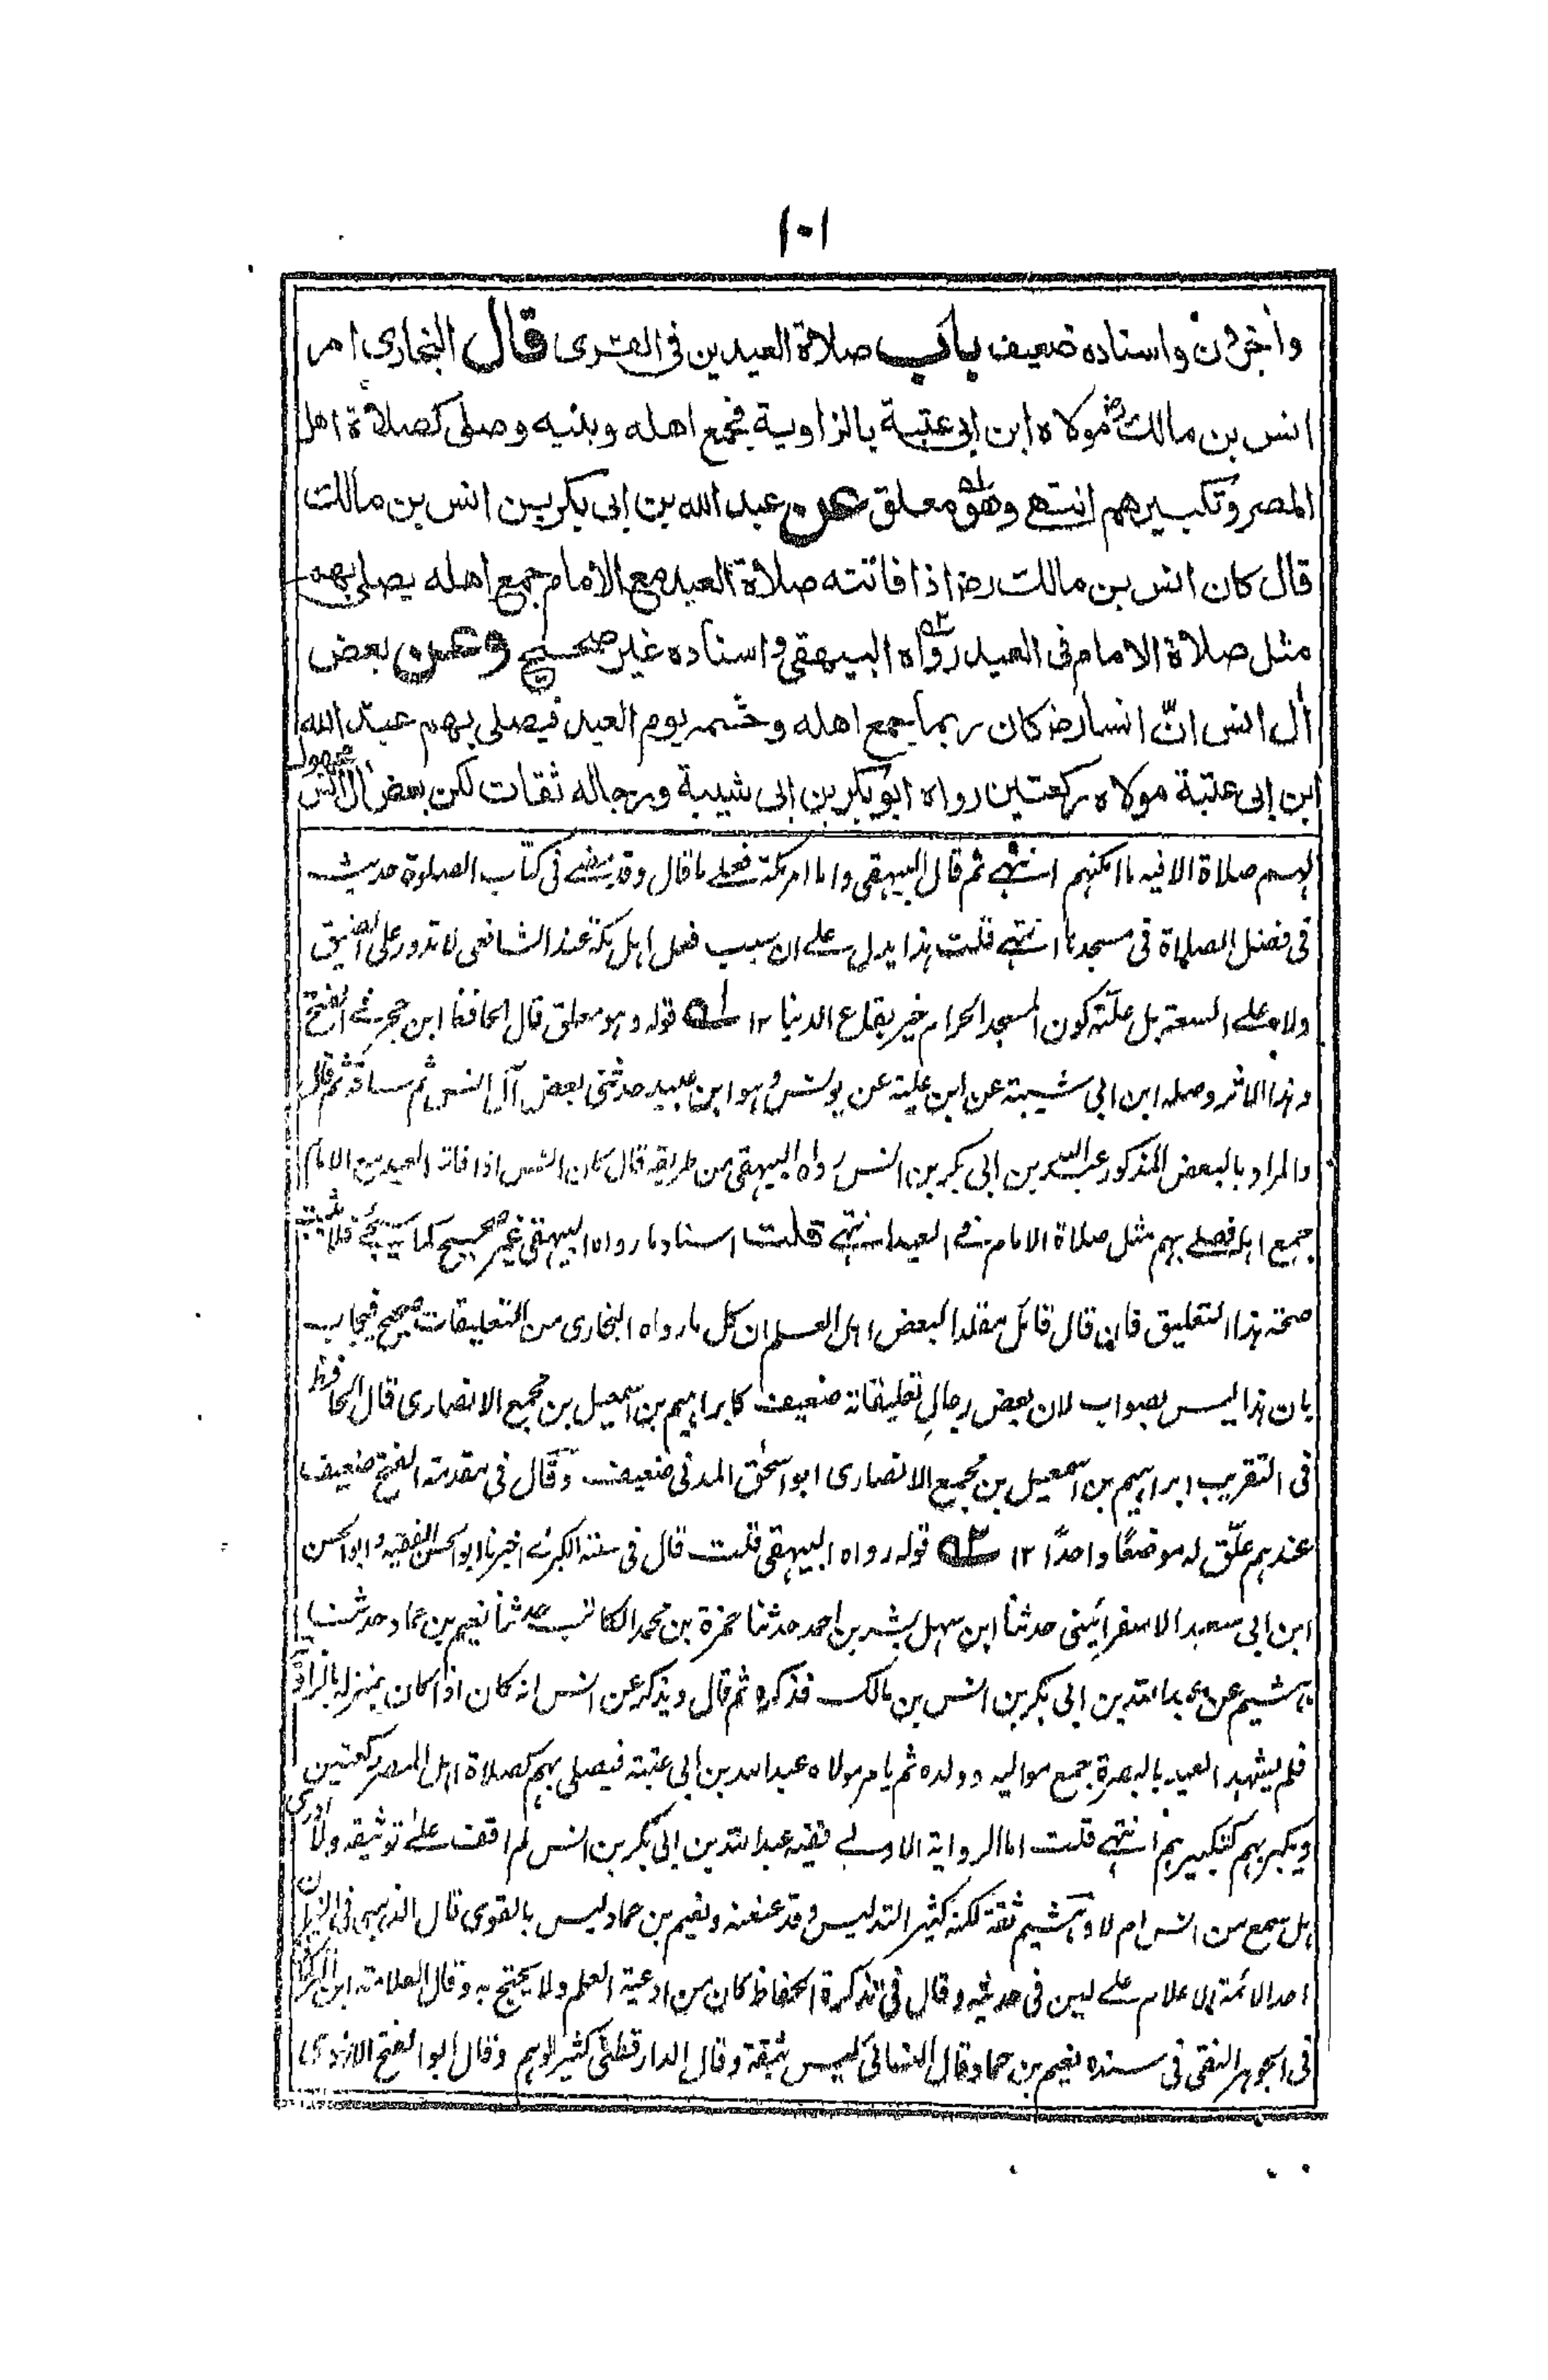 ١٠١
وأخرون واسناده ضعيف باب صلاة العيدين فى القرى قال البخارى امر
انس بن مالك رض مولاه ابن ابى عتبة بالزاوية فجمع اهله وبنيه وصلى كصلاة اهل
المصر وتكبيرهم انتهى وهو معلق عن عبد الله بن ابى بكر بن انس بن مالك
قال كان انس بن مالك رض اذا فاتته صلاة العيد مع الامام جمع اهله يصلى بهم
مثل صلاة الامام فى العيد رواه البيهقى واسناده غير صحيح وعن بعض
أل انس انّ انسا رض كان ربما يجمع اهله وحشمه يوم العيد فيصلى بهم عبد الله
ابن ابى عتبة مولاه ركعتين رواه ابو بكر بن ابى شيبة ورجاله ثقات لكن بعض أل انس مجهول
لهم صلاة الا فيه ما امكنهم انتهى ثم قال البيهقى واما امر مكة فعلى ما قال وقد مضى فى كتاب الصلوة حديث
فى فضل الصلاة فى مسجدها انتهى قلت هذا يدل على ان سبب فعل اهل مكة عند الشافعى لا تدور على الضيق
ولا على السعة بل علته كون المسجد الحرام خير بقاع الدنيا ١٢ له قوله وهو معلق قال الحافظ ابن حجر فى الفتح
وهذا الاثر وصله ابن ابى شيبة عن ابن علية عن يونس وهو ابن عبيد حدثنى بعض آل انس ثم ساقه ثم قال
والمراد بالبعض المذكور عبد الله بن ابى بكر بن انس رواه البيهقى من طريقه قال كان انس اذا فاته العيد مع الامام
جمع اهله فصلى بهم مثل صلاة الامام فى العيد انتهى قلت اسناد ما رواه البيهقى غير صحيح كما سيجئ فلا يثبت
صحة هذا التعليق فان قال قائل مقلدا لبعض اهل العلم ان كل ما رواه البخارى من التعليقات صحيح فيجاب
بان هذا ليس بصواب لان بعض رجال تعليقاته ضعيف كابراهيم بن اسمعيل بن مجمع الانصارى قال الحافظ
فى التقريب ابراهيم بن اسمعيل بن مجمع الانصارى ابو اسحٰق المدنى ضعيف وقال فى مقدمة الفتح ضعيف
عندهم علّق له موضعًا واحدًا ١٢ قوله رواه البيهقى قلت قال فى سننه الكبرى اخبرنا ابو الحسن الفقيه وابو الحسن
ابن ابى سعيد الاسفرائينى حدثنا ابن سهل بشر بن احمد حدثنا حمزة بن محمد الكاتب حدثنا نعيم بن حماد حدثنا
هشيم عن عبد الله بن ابى بكر بن انس بن مالك فذكره ثم قال ويذكر عن انس انه كان اذا كان بمنزله بالزاوية
فلم يشهد العيد بالبصرة جمع مواليه وولده ثم يامر مولاه عبد الله بن ابى عتبة فيصلى بهم كصلاة اهل المصر ركعتين
ويكبر بهم كتكبيرهم انتهى قلت اما الرواية الاولى ففيه عبد الله بن ابى بكر بن انس لم اقف على توثيقه ولا ادرى
هل سمع من انس ام لا وهشيم ثقة لكنه كثير التدليس وقد عنعنه ونعيم بن حماد ليس بالقوى قال الذهبى فى الميزان
احد الائمة الاعلام على لين فى حديثه وقال فى تذكرة الحفاظ كان من اوعية العلم ولا يحتج به وقال العلامة ابن التركمانى
فى الجوهر النقى فى سنده نعيم بن حماد قال النسائى ليس بثقة وقال الدارقطنى كثير الوهم وقال ابو الفتح الازدى